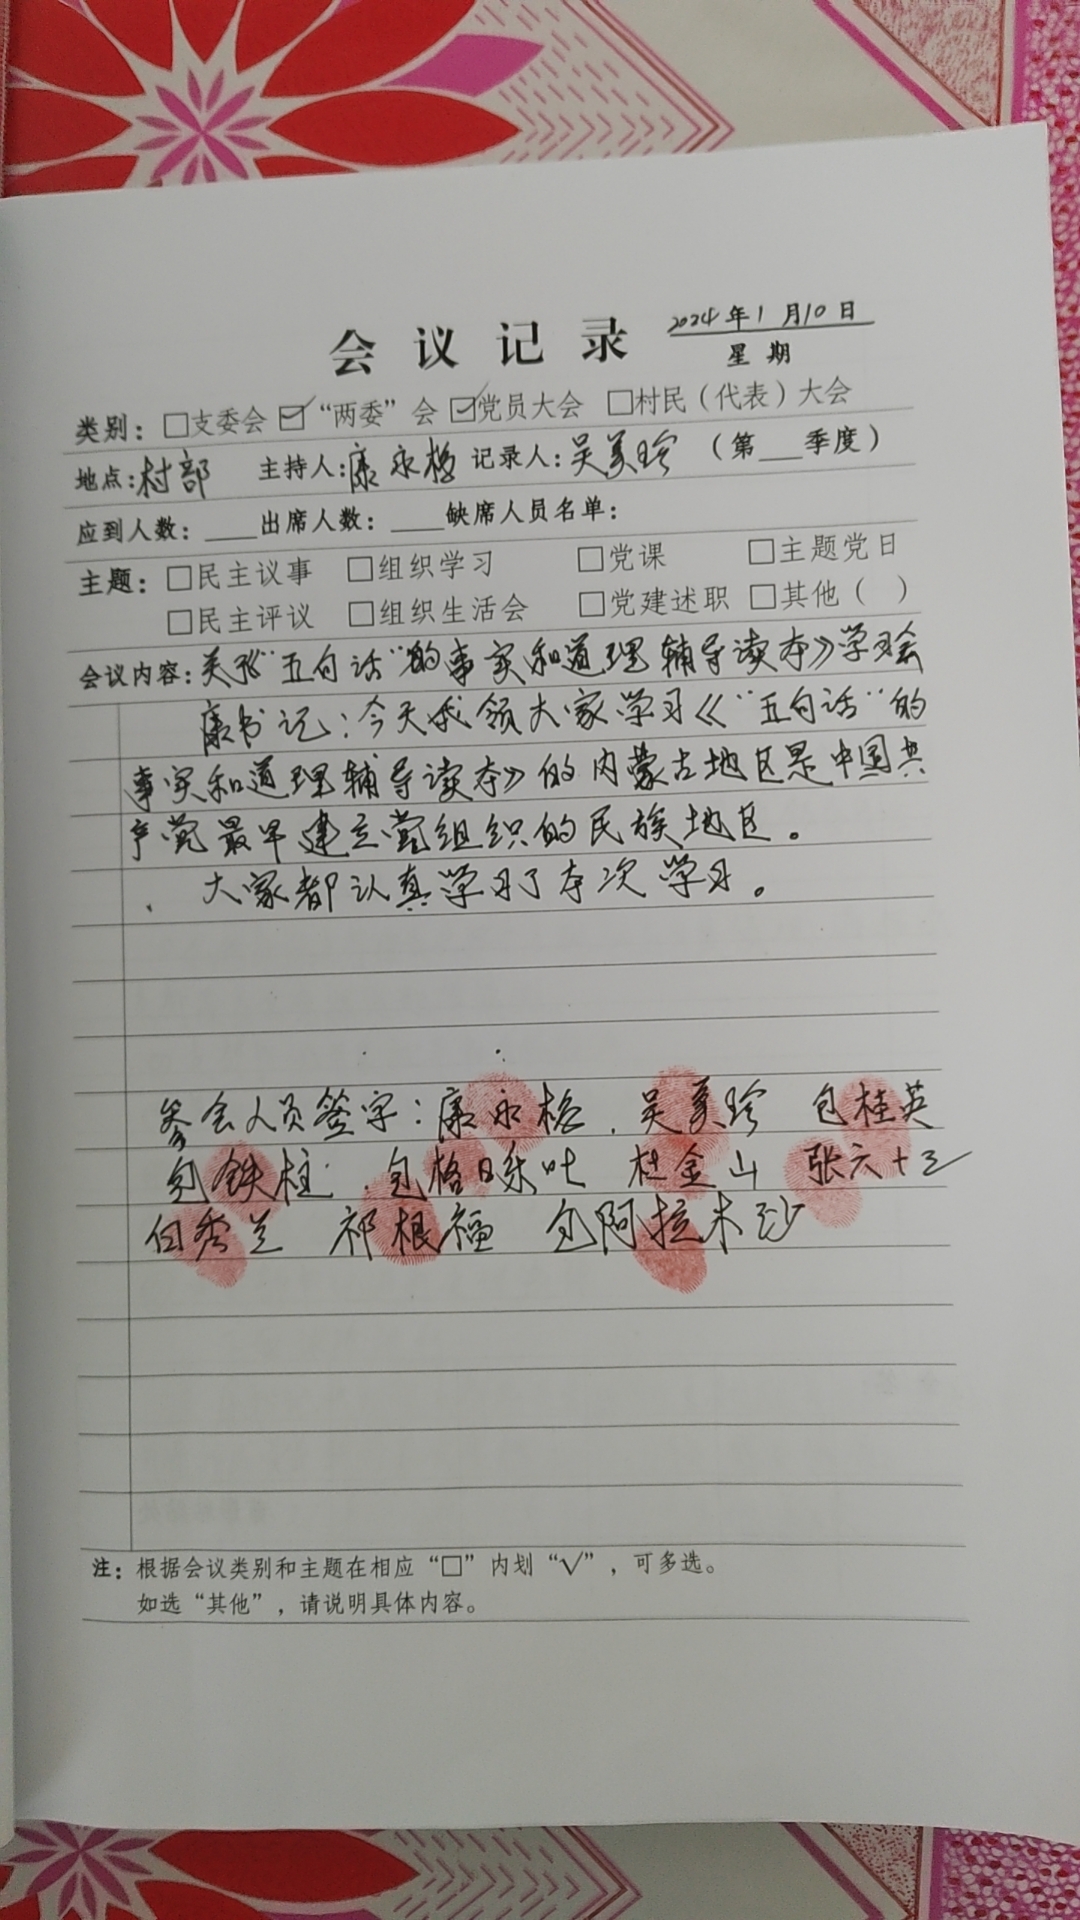 会议记录 2024年1月10日
星期
类别：□支委会 ☑“两委”会 ☑党员大会 □村民（代表）大会
地点：村部 主持人：康永格 记录人：吴美珍 （第___季度）
应到人数：____出席人数：____缺席人员名单：
主题：□民主议事 □组织学习 □党课 □主题党日
□民主评议 □组织生活会 □党建述职 □其他（ ）
会议内容：关于《“五句话”的事实和道理辅导读本》学习会
康书记：今天我领大家学习《“五句话”的
事实和道理辅导读本》的内蒙古地区是中国共
产党最早建立党组织的民族地区。
大家都认真学习了本次学习。
参会人员签字：康永格 . 吴美珍 包桂英
包铁柱 包格日乐吐 杜金山 张六十三
白秀兰 祁根福 包阿拉木沙
注：根据会议类别和主题在相应“□”内划“√”，可多选。
如选“其他”，请说明具体内容。